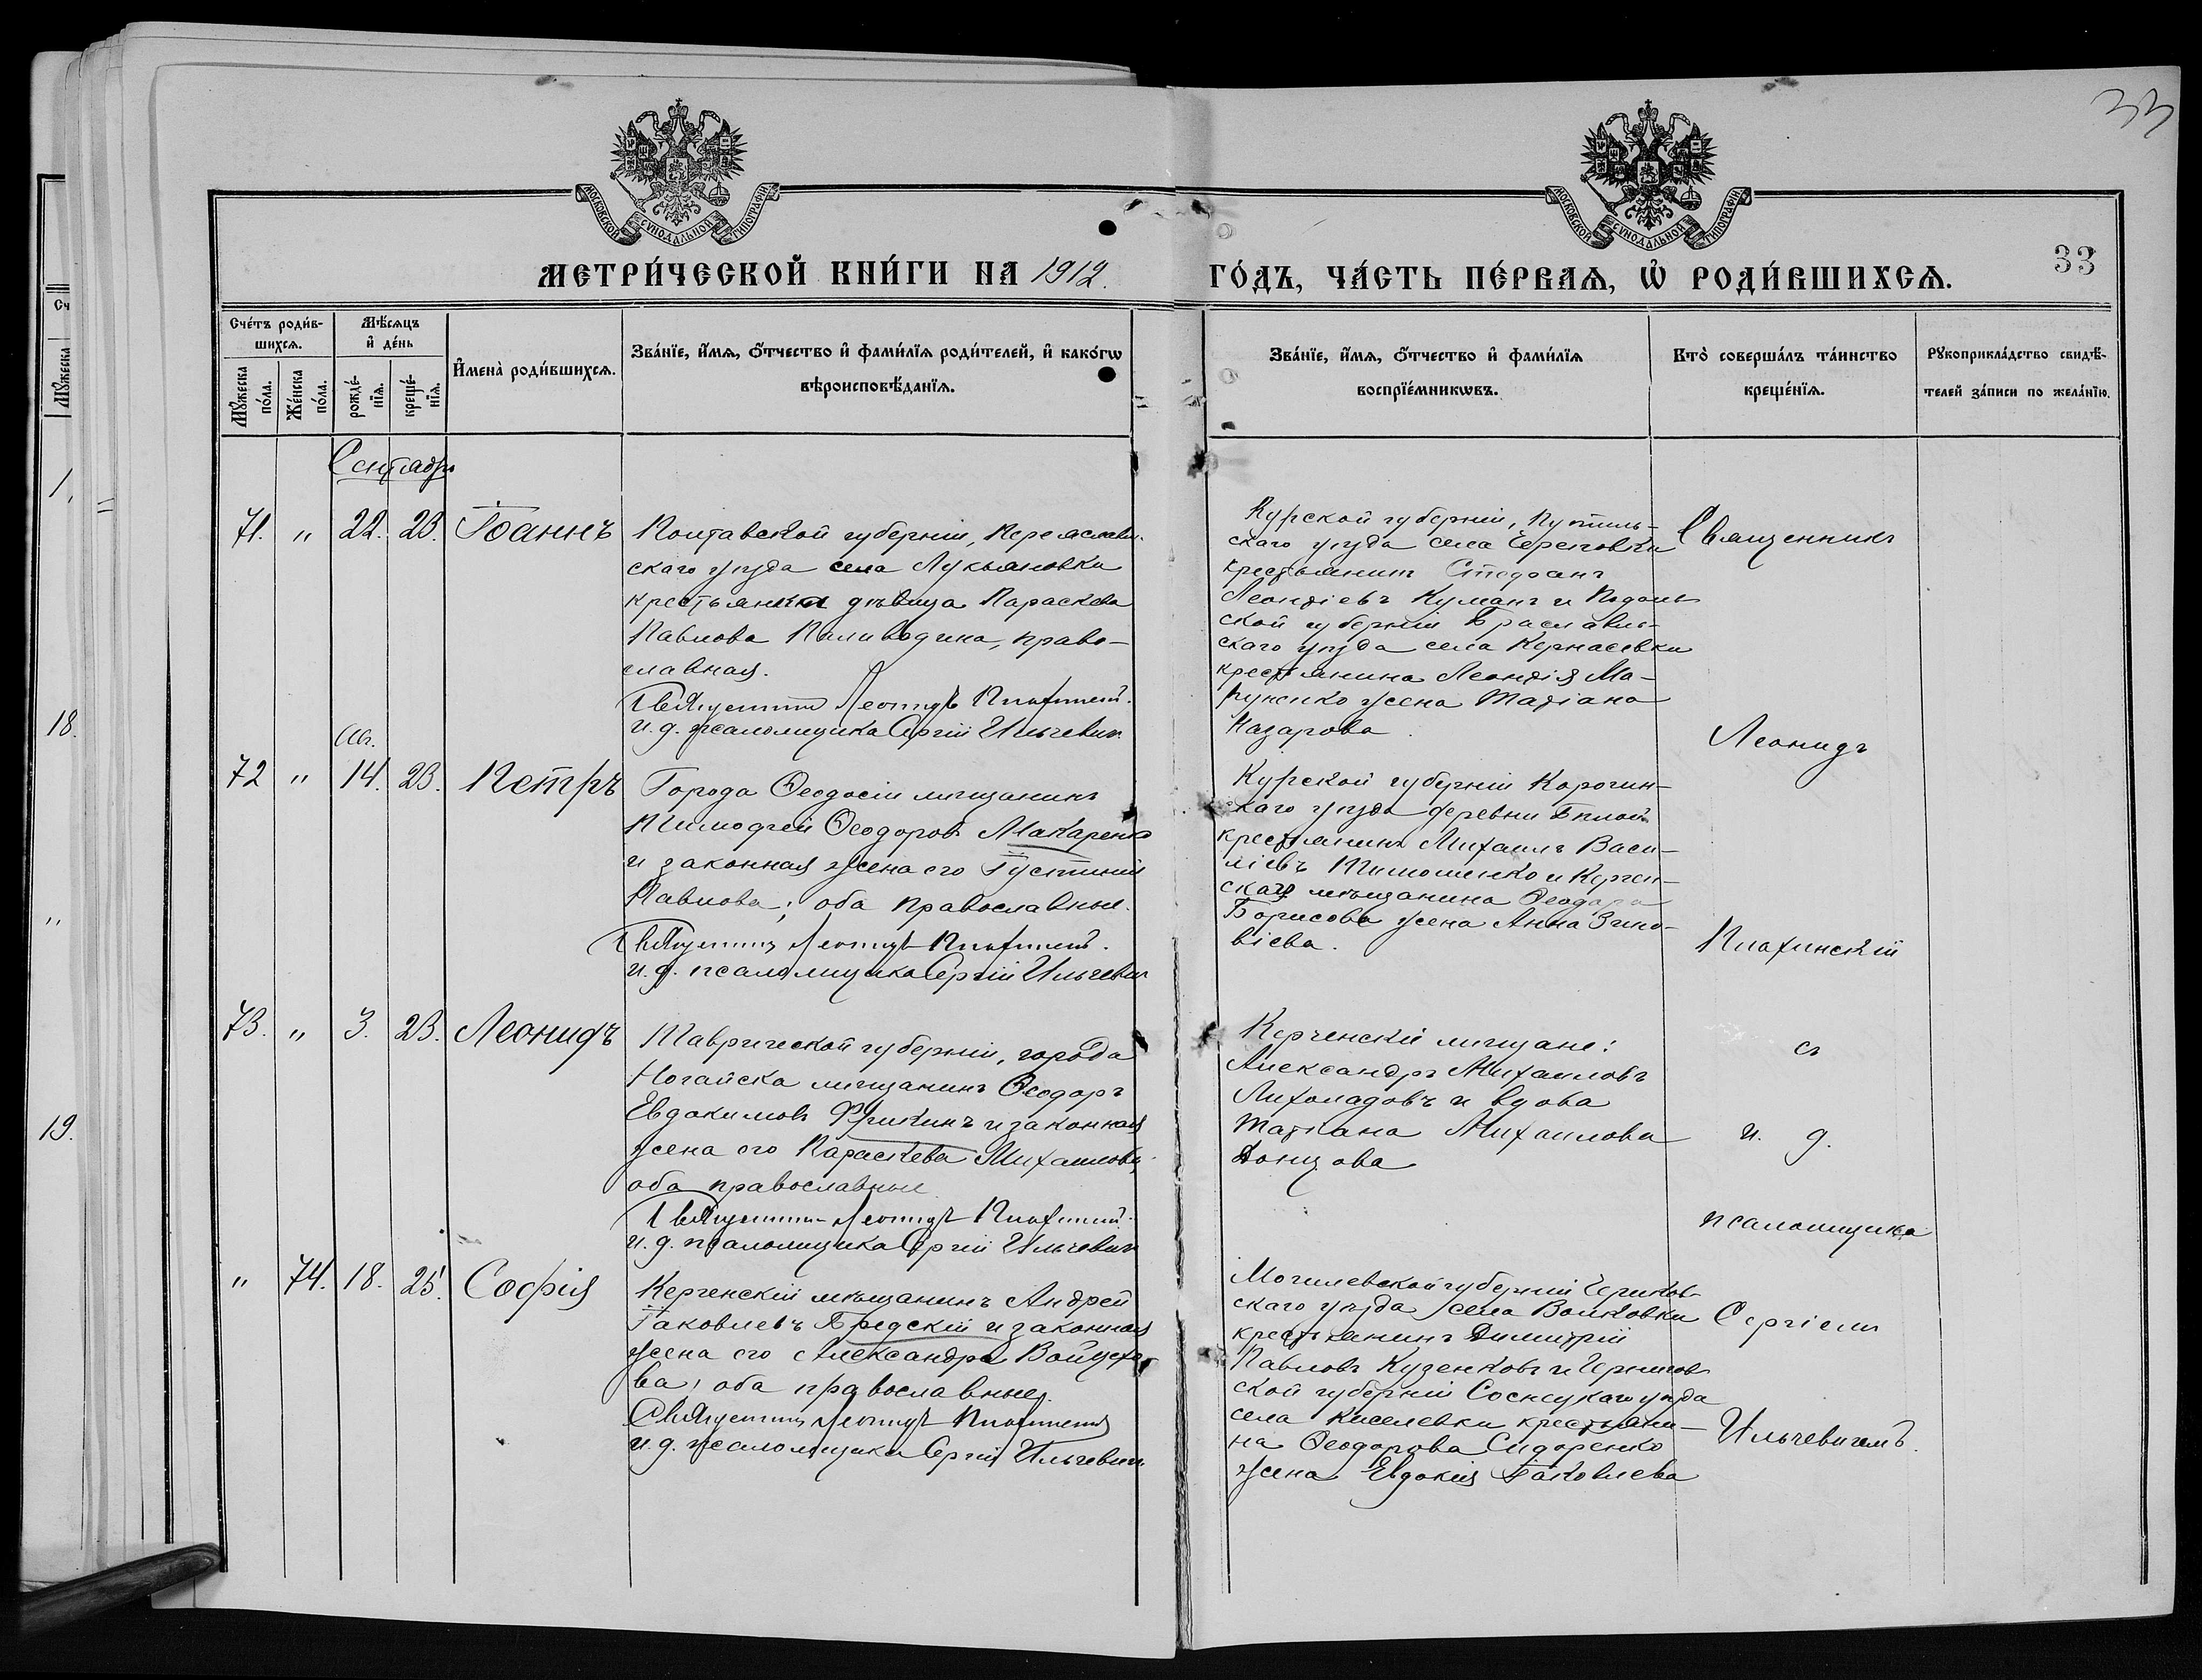 33
МОСКОВСКОЙ СѴНОДАЛЬНОЙ ТИПОГРАФІИ
МОСКОВСКОЙ СѴНОДАЛЬНОЙ ТИПОГРАФІИ
МЕТРИ́ЧЕСКОЙ КНИ́ГИ НА 1912.
ГО́ДЪ, ЧА́СТЬ ПЕ́РВАѦ, Ѡ҆ РОДИ́ВШИХСѦ.
33
Сче́тъ роди́в-
шихсѧ.
Мꙋ́жеска по́ла.
Же́нска по́ла.
Мѣ́сѧцъ
и҆ де́нь
рожде́-
нїѧ.
креще́-
нїѧ.
И҆мена̀ роди́вшихсѧ.
Зва́нїе, и҆́мѧ, ѻ҆́тчество и҆ фами́лїѧ роди́телей, и҆ како́гѡ
вѣроисповѣ́данїѧ.
Зва́нїе, и҆́мѧ, ѻ҆́тчество и҆ фами́лїѧ
воспрїе́мникѡвъ.
Кто̀ соверша́лъ та́инство
креще́нїѧ.
Рꙋкоприкла́дство свидѣ́-
телей за́писи по жела́нїю.
Сч
Мꙋжеска
1.
18.
"
19.
Сентябрь
71. " 22. 23. Іоаннъ
Полтавской губерніи, Переяслав-
скаго уѣзда села Лукьяновки
крестьянка дѣвица Параскева
Павлова Паливодина, право-
славная.
Священникъ Леонидъ Плахинскій.
и.д. псаломщика Сергій Ильчевич
Курской губерніи, Путивль-
скаго уѣзда села Череповки
крестьянинъ Стефанъ
Леонтіевъ Куманъ и Подоль
ской губерніи Брацлавль-
скаго уѣзда села Кернасовки
крестьянина Леонтія Ма-
жена Татіана
Назарова.
Авг.
72 " 14. 23. Петръ
Города Ѳеодосіи мѣщанинъ
Тимоѳей Ѳеодоровъ Макаренко
и законная жена его Іустинія
Павлова; оба православные.
Священникъ Леонидъ Плахинскій.
и.д. псаломщика Сергій Ильчевич
Курской губерніи Корочин-
скаго уѣзда деревни Бѣлой
крестьянинъ Михаилъ Васи-
ліевъ Тимошенко и Керчен-
скаго мѣщанина Ѳеодора
Борисова жена Анна Зино-
віева.
73. " 3. 23. Леонидъ
Таврической губерніи, города
Ногайска мѣщанинъ Ѳеодоръ
Евдокимовъ и законная
жена его Параскева Михаилова,
оба православные
Священникъ Леонидъ Плахинскій.
и.д. псаломщика Сергій Ильчевич
Керченскіе мѣщане:
Александръ Михаиловъ
Лихоладовъ и вдова
Татіана Михаилова
Донцова
" 74. 18. 25. Софія
Керченскій мѣщанинъ Андрей
Іаковлевъ Бредскій и законная
жена его Александра Войцехо-
ва, оба православные.
Священникъ Леонидъ Плахинскій
и.д. псаломщика Сергій Ильчевич
Могилевской губерніи Чериков-
скаго уѣзда села Волковки
крестьянинъ Димитрій
Павловъ Кузенковъ и Чернигов
ской губерніи Сосницкаго уѣзда
села Киселевки крестьяни-
на Ѳеодорова Сидоренко
жена Евдокія Іаковлева
Священникъ
Леонидъ
Плахинскій
съ
и. д.
псаломщика
Сергіемъ
Ильчевичемъ.